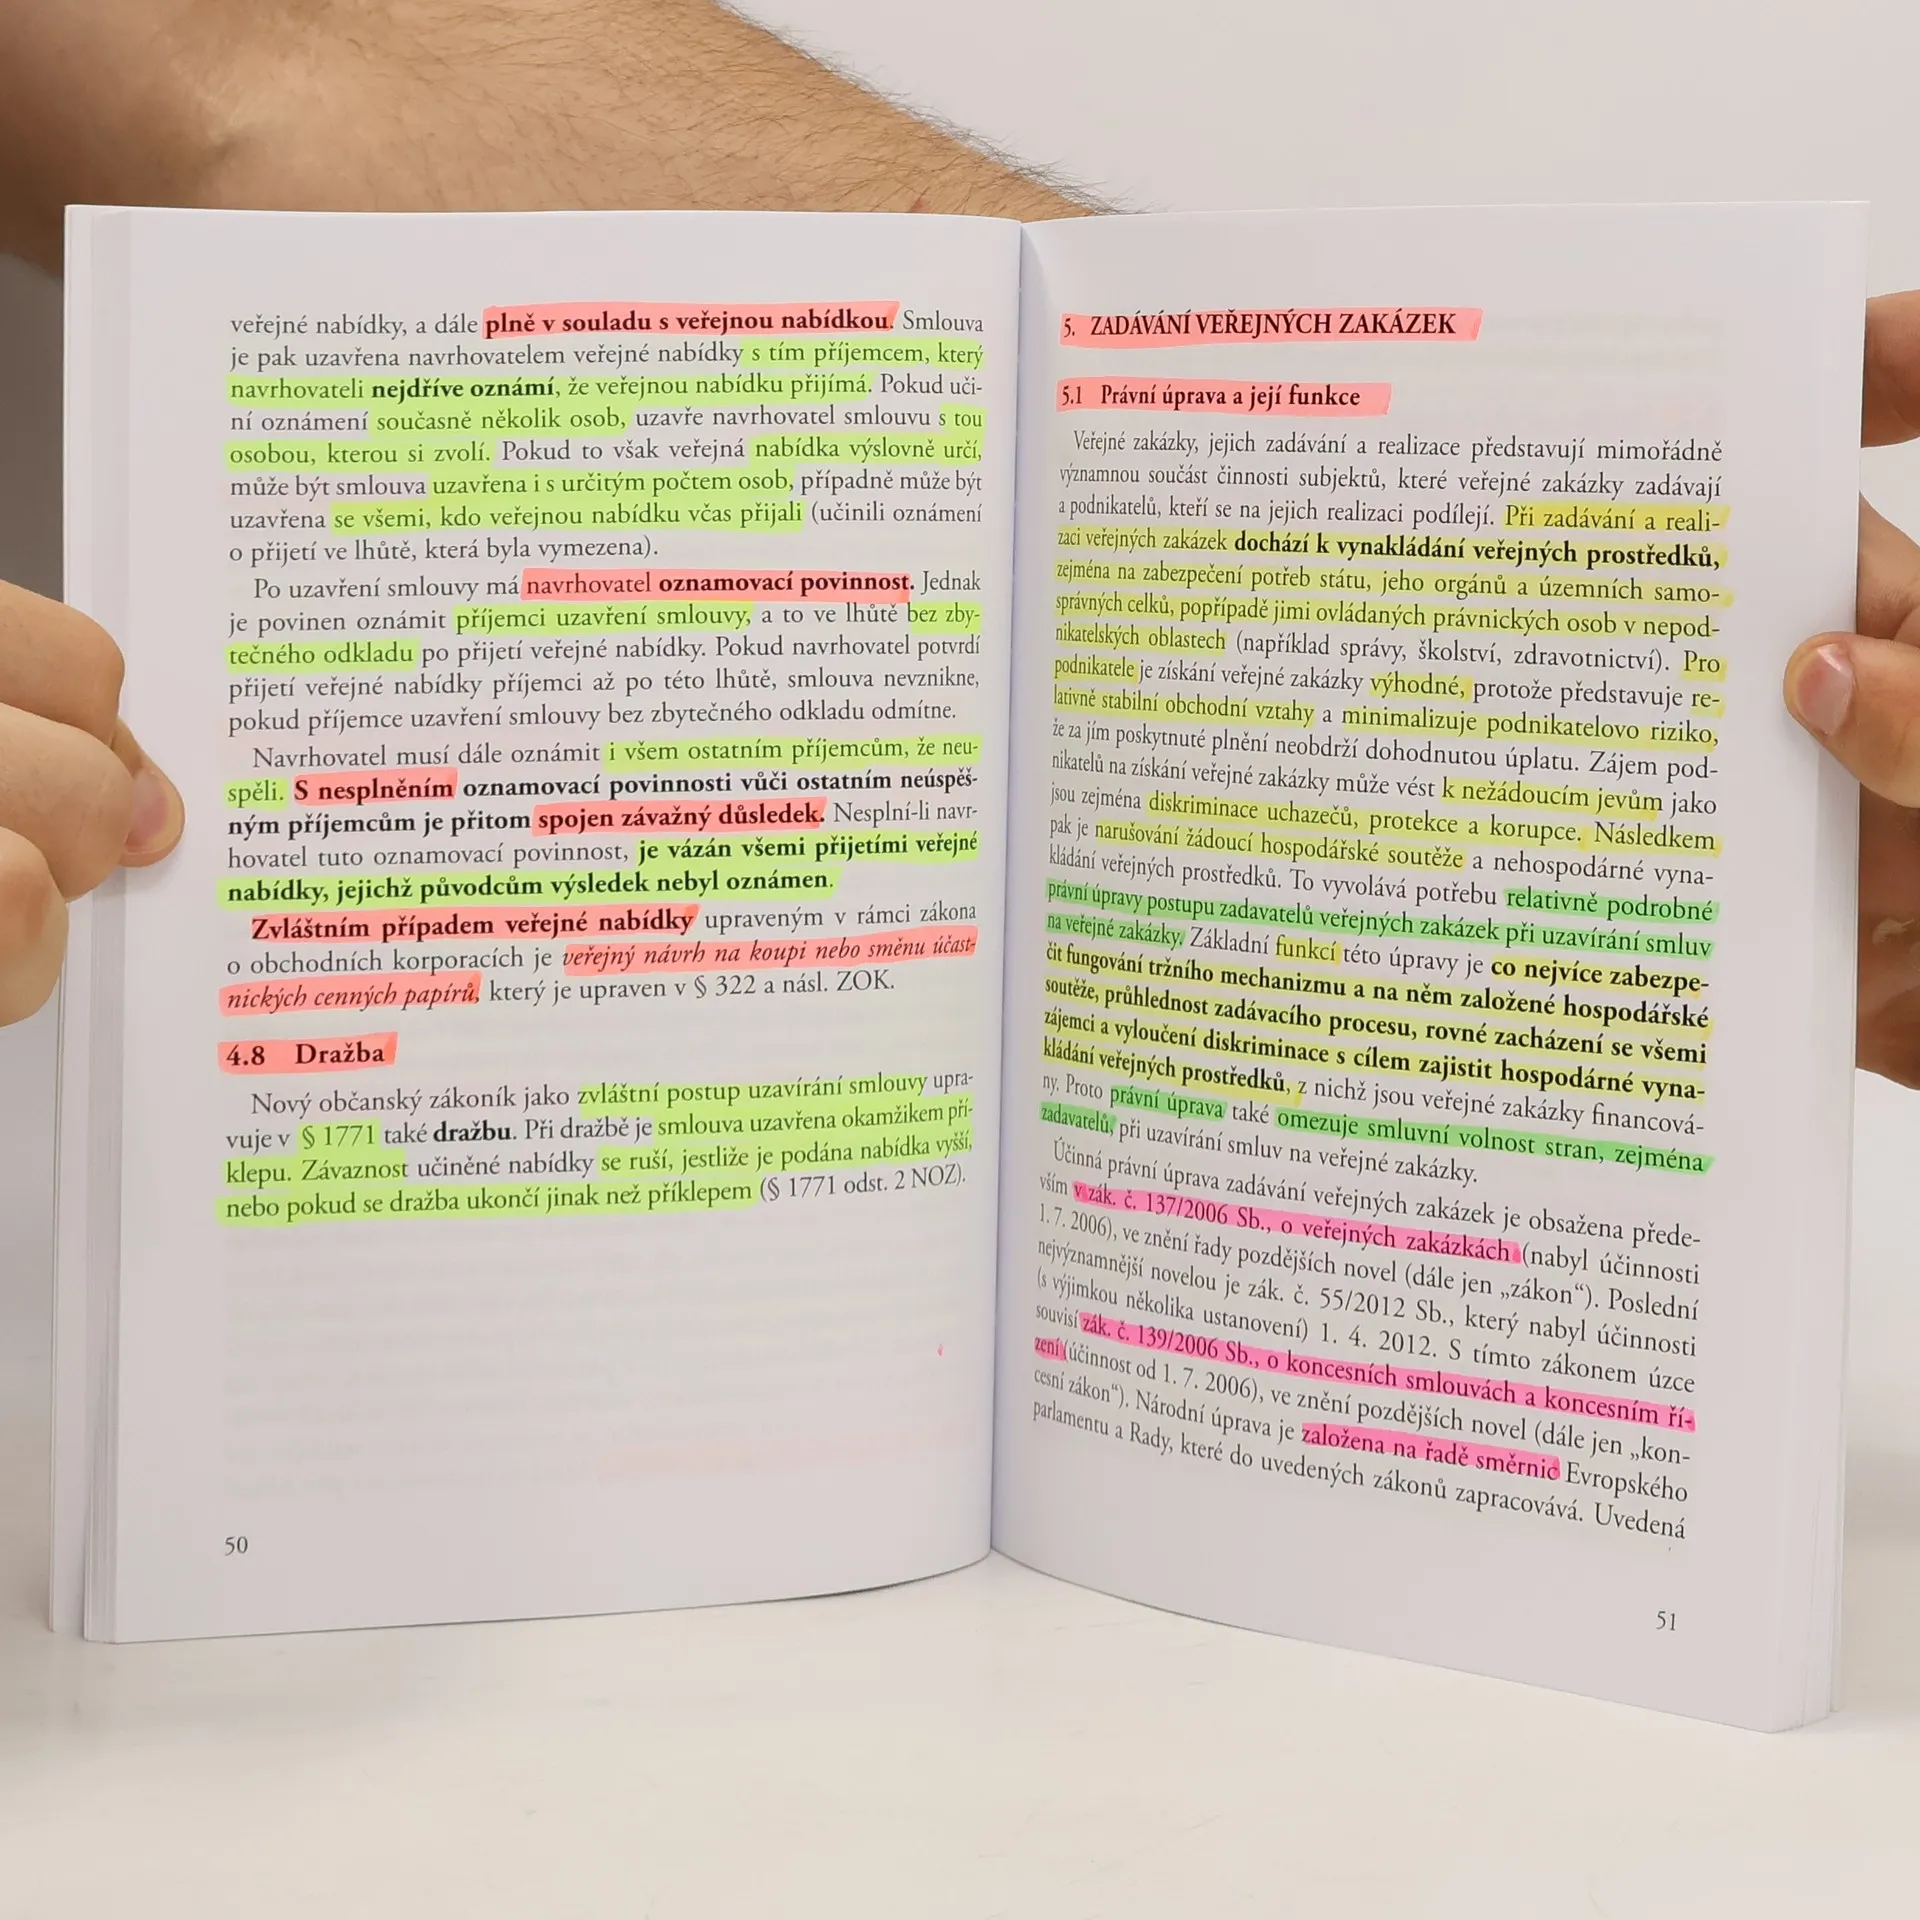 veřejné nabídky, a dále plně v souladu s veřejnou nabídkou. Smlouva
je pak uzavřena navrhovatelem veřejné nabídky s tím příjemcem, který
navrhovateli nejdříve oznámí, že veřejnou nabídku přijímá. Pokud uči-
ní oznámení současně několik osob, uzavře navrhovatel smlouvu s tou
osobou, kterou si zvolí. Pokud to však veřejná nabídka výslovně určí,
může být smlouva uzavřena i s určitým počtem osob, případně může být
uzavřena se všemi, kdo veřejnou nabídku včas přijali (učinili oznámení
o přijetí ve lhůtě, která byla vymezena).
Po uzavření smlouvy má navrhovatel oznamovací povinnost. Jednak
je povinen oznámit příjemci uzavření smlouvy, a to ve lhůtě bez zby-
tečného odkladu po přijetí veřejné nabídky. Pokud navrhovatel potvrdí
přijetí veřejné nabídky příjemci až po této lhůtě, smlouva nevznikne,
pokud příjemce uzavření smlouvy bez zbytečného odkladu odmítne.
Navrhovatel musí dále oznámit i všem ostatním příjemcům, že neu-
spěli. S nesplněním oznamovací povinnosti vůči ostatním neúspěš-
ným příjemcům je přitom spojen závažný důsledek. Nesplní-li navr-
hovatel tuto oznamovací povinnost, je vázán všemi přijetími veřejné
nabídky, jejichž původcům výsledek nebyl oznámen.
Zvláštním případem veřejné nabídky upraveným v rámci zákona
o obchodních korporacích je veřejný návrh na koupi nebo směnu účast-
nických cenných papírů, který je upraven v § 322 a násl. ZOK.
4.8 Dražba
Nový občanský zákoník jako zvláštní postup uzavírání smlouvy upra-
vuje v § 1771 také dražbu. Při dražbě je smlouva uzavřena okamžikem pří-
klepu. Závaznost učiněné nabídky se ruší, jestliže je podána nabídka vyšší,
nebo pokud se dražba ukončí jinak než příklepem (§ 1771 odst. 2 NOZ).
50
5. ZADÁVÁNÍ VEŘEJNÝCH ZAKÁZEK
5.1 Právní úprava a její funkce
Veřejné zakázky, jejich zadávání a realizace představují mimořádně
významnou součást činnosti subjektů, které veřejné zakázky zadávají
a podnikatelů, kteří se na jejich realizaci podílejí. Při zadávání a reali-
zaci veřejných zakázek dochází k vynakládání veřejných prostředků,
zejména na zabezpečení potřeb státu, jeho orgánů a územních samo-
správných celků, popřípadě jimi ovládaných právnických osob v nepod-
nikatelských oblastech (například správy, školství, zdravotnictví). Pro
podnikatele je získání veřejné zakázky výhodné, protože představuje re-
lativně stabilní obchodní vztahy a minimalizuje podnikatelovo riziko,
že za jím poskytnuté plnění neobdrží dohodnutou úplatu. Zájem pod-
nikatelů na získání veřejné zakázky může vést k nežádoucím jevům jako
jsou zejména diskriminace uchazečů, protekce a korupce. Následkem
pak je narušování žádoucí hospodářské soutěže a nehospodárné vyna-
kládání veřejných prostředků. To vyvolává potřebu relativně podrobné
právní úpravy postupu zadavatelů veřejných zakázek při uzavírání smluv
na veřejné zakázky. Základní funkcí této úpravy je co nejvíce zabezpe-
čit fungování tržního mechanizmu a na něm založené hospodářské
soutěže, průhlednost zadávacího procesu, rovné zacházení se všemi
zájemci a vyloučení diskriminace s cílem zajistit hospodárné vyna-
kládání veřejných prostředků, z nichž jsou veřejné zakázky financová-
ny. Proto právní úprava také omezuje smluvní volnost stran, zejména
zadavatelů, při uzavírání smluv na veřejné zakázky.
Účinná právní úprava zadávání veřejných zakázek je obsažena přede-
vším v zák. č. 137/2006 Sb., o veřejných zakázkách (nabyl účinnosti
1. 7. 2006), ve znění řady pozdějších novel (dále jen „zákon“). Poslední
nejvýznamnější novelou je zák. č. 55/2012 Sb., který nabyl účinnosti
(s výjimkou několika ustanovení) 1. 4. 2012. S tímto zákonem úzce
souvisí zák. č. 139/2006 Sb., o koncesních smlouvách a koncesním ří-
zení (účinnost od 1. 7. 2006), ve znění pozdějších novel (dále jen „kon-
cesní zákon“). Národní úprava je založena na řadě směrnic Evropského
parlamentu a Rady, které do uvedených zákonů zapracovává. Uvedená
51